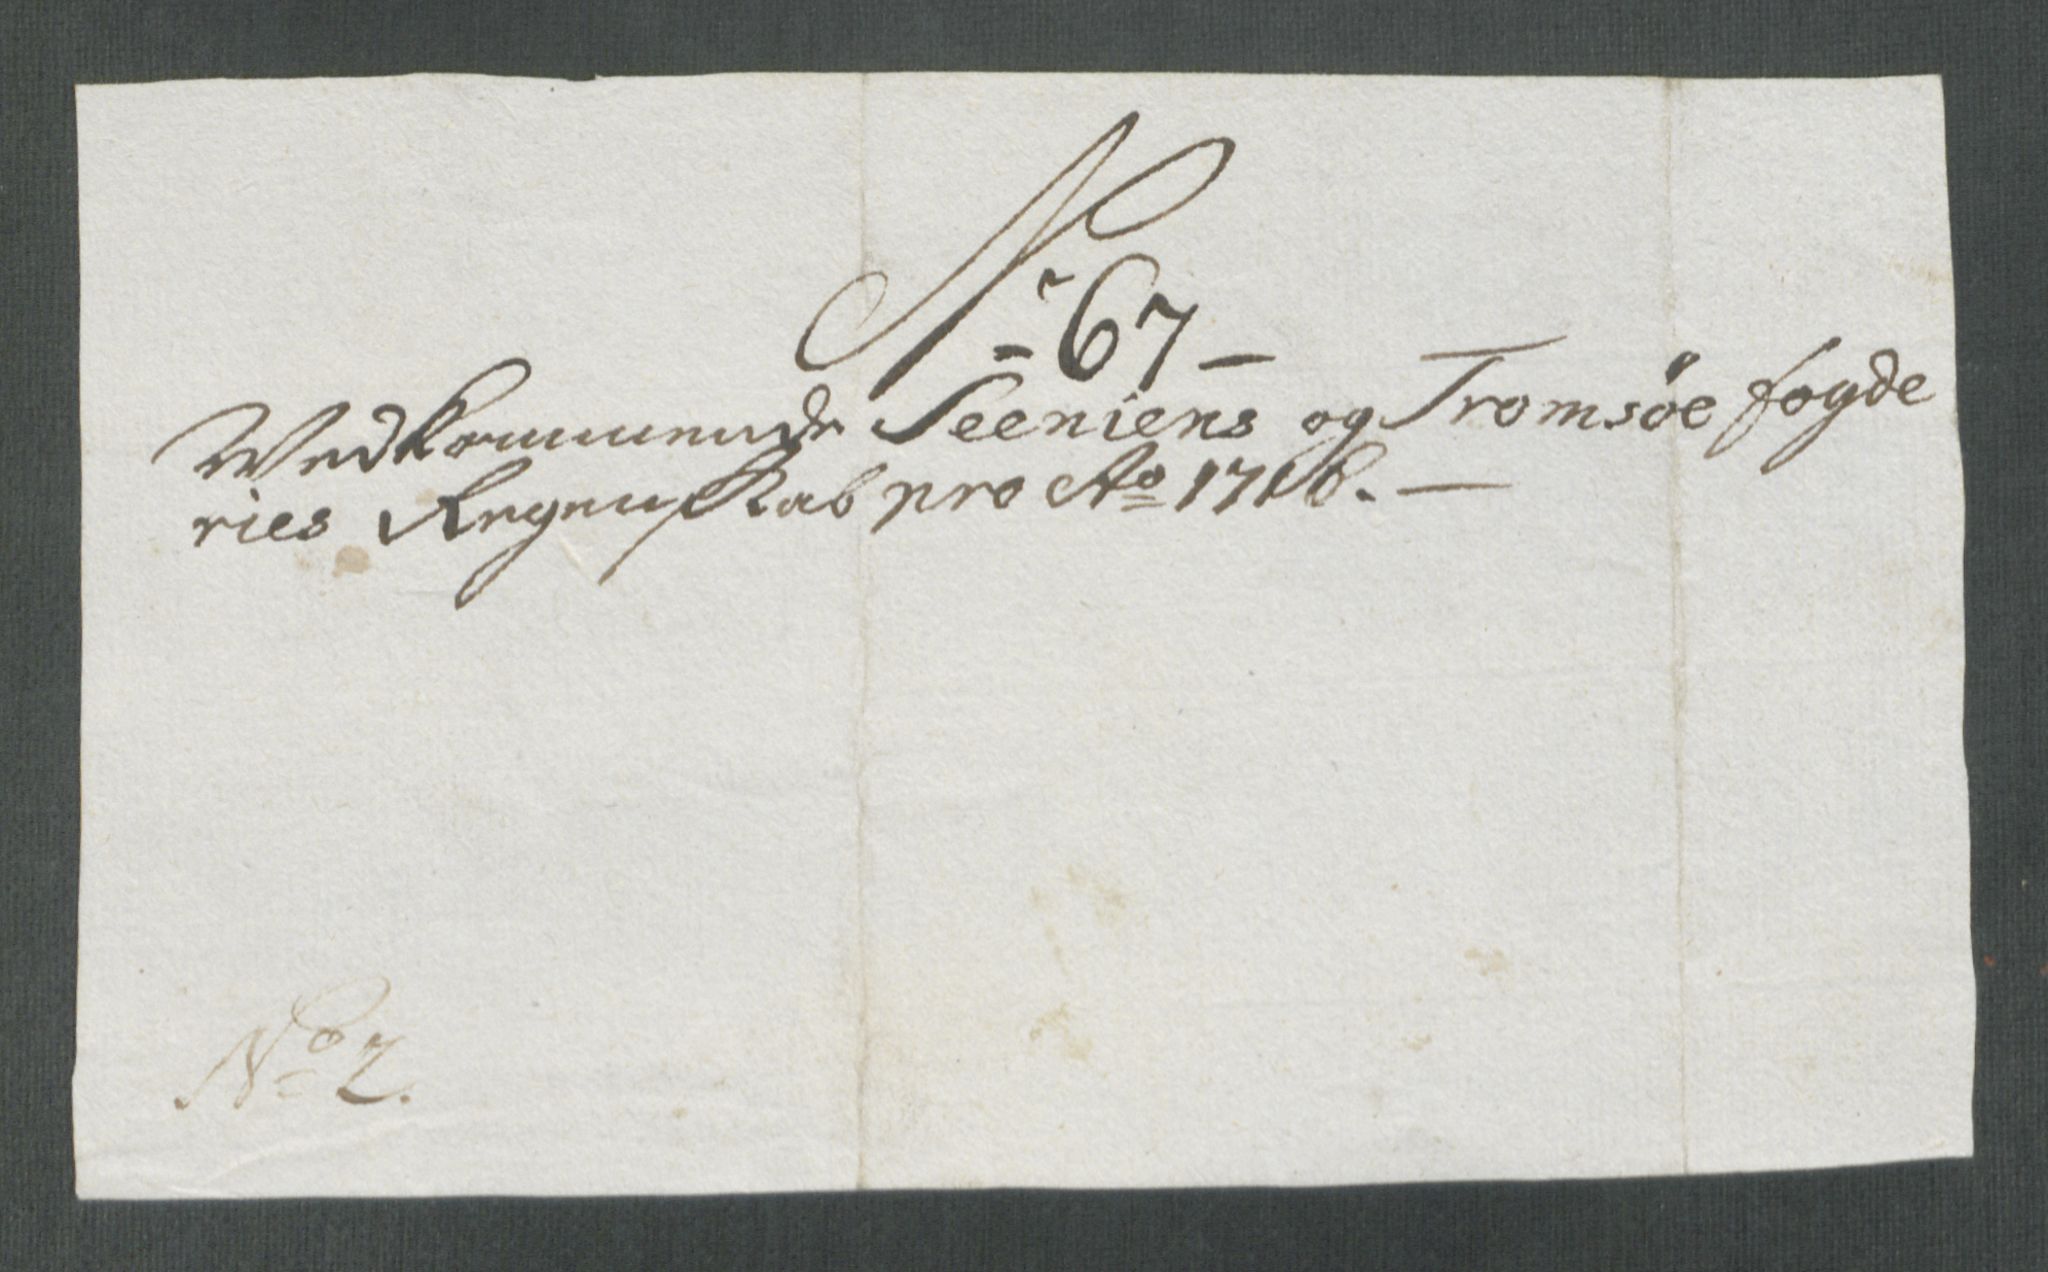 Nr 67 -
Vedkommende Seeniens og Tromsøe fogde
ries Regenskab pro Ao 1716. -
No 2.